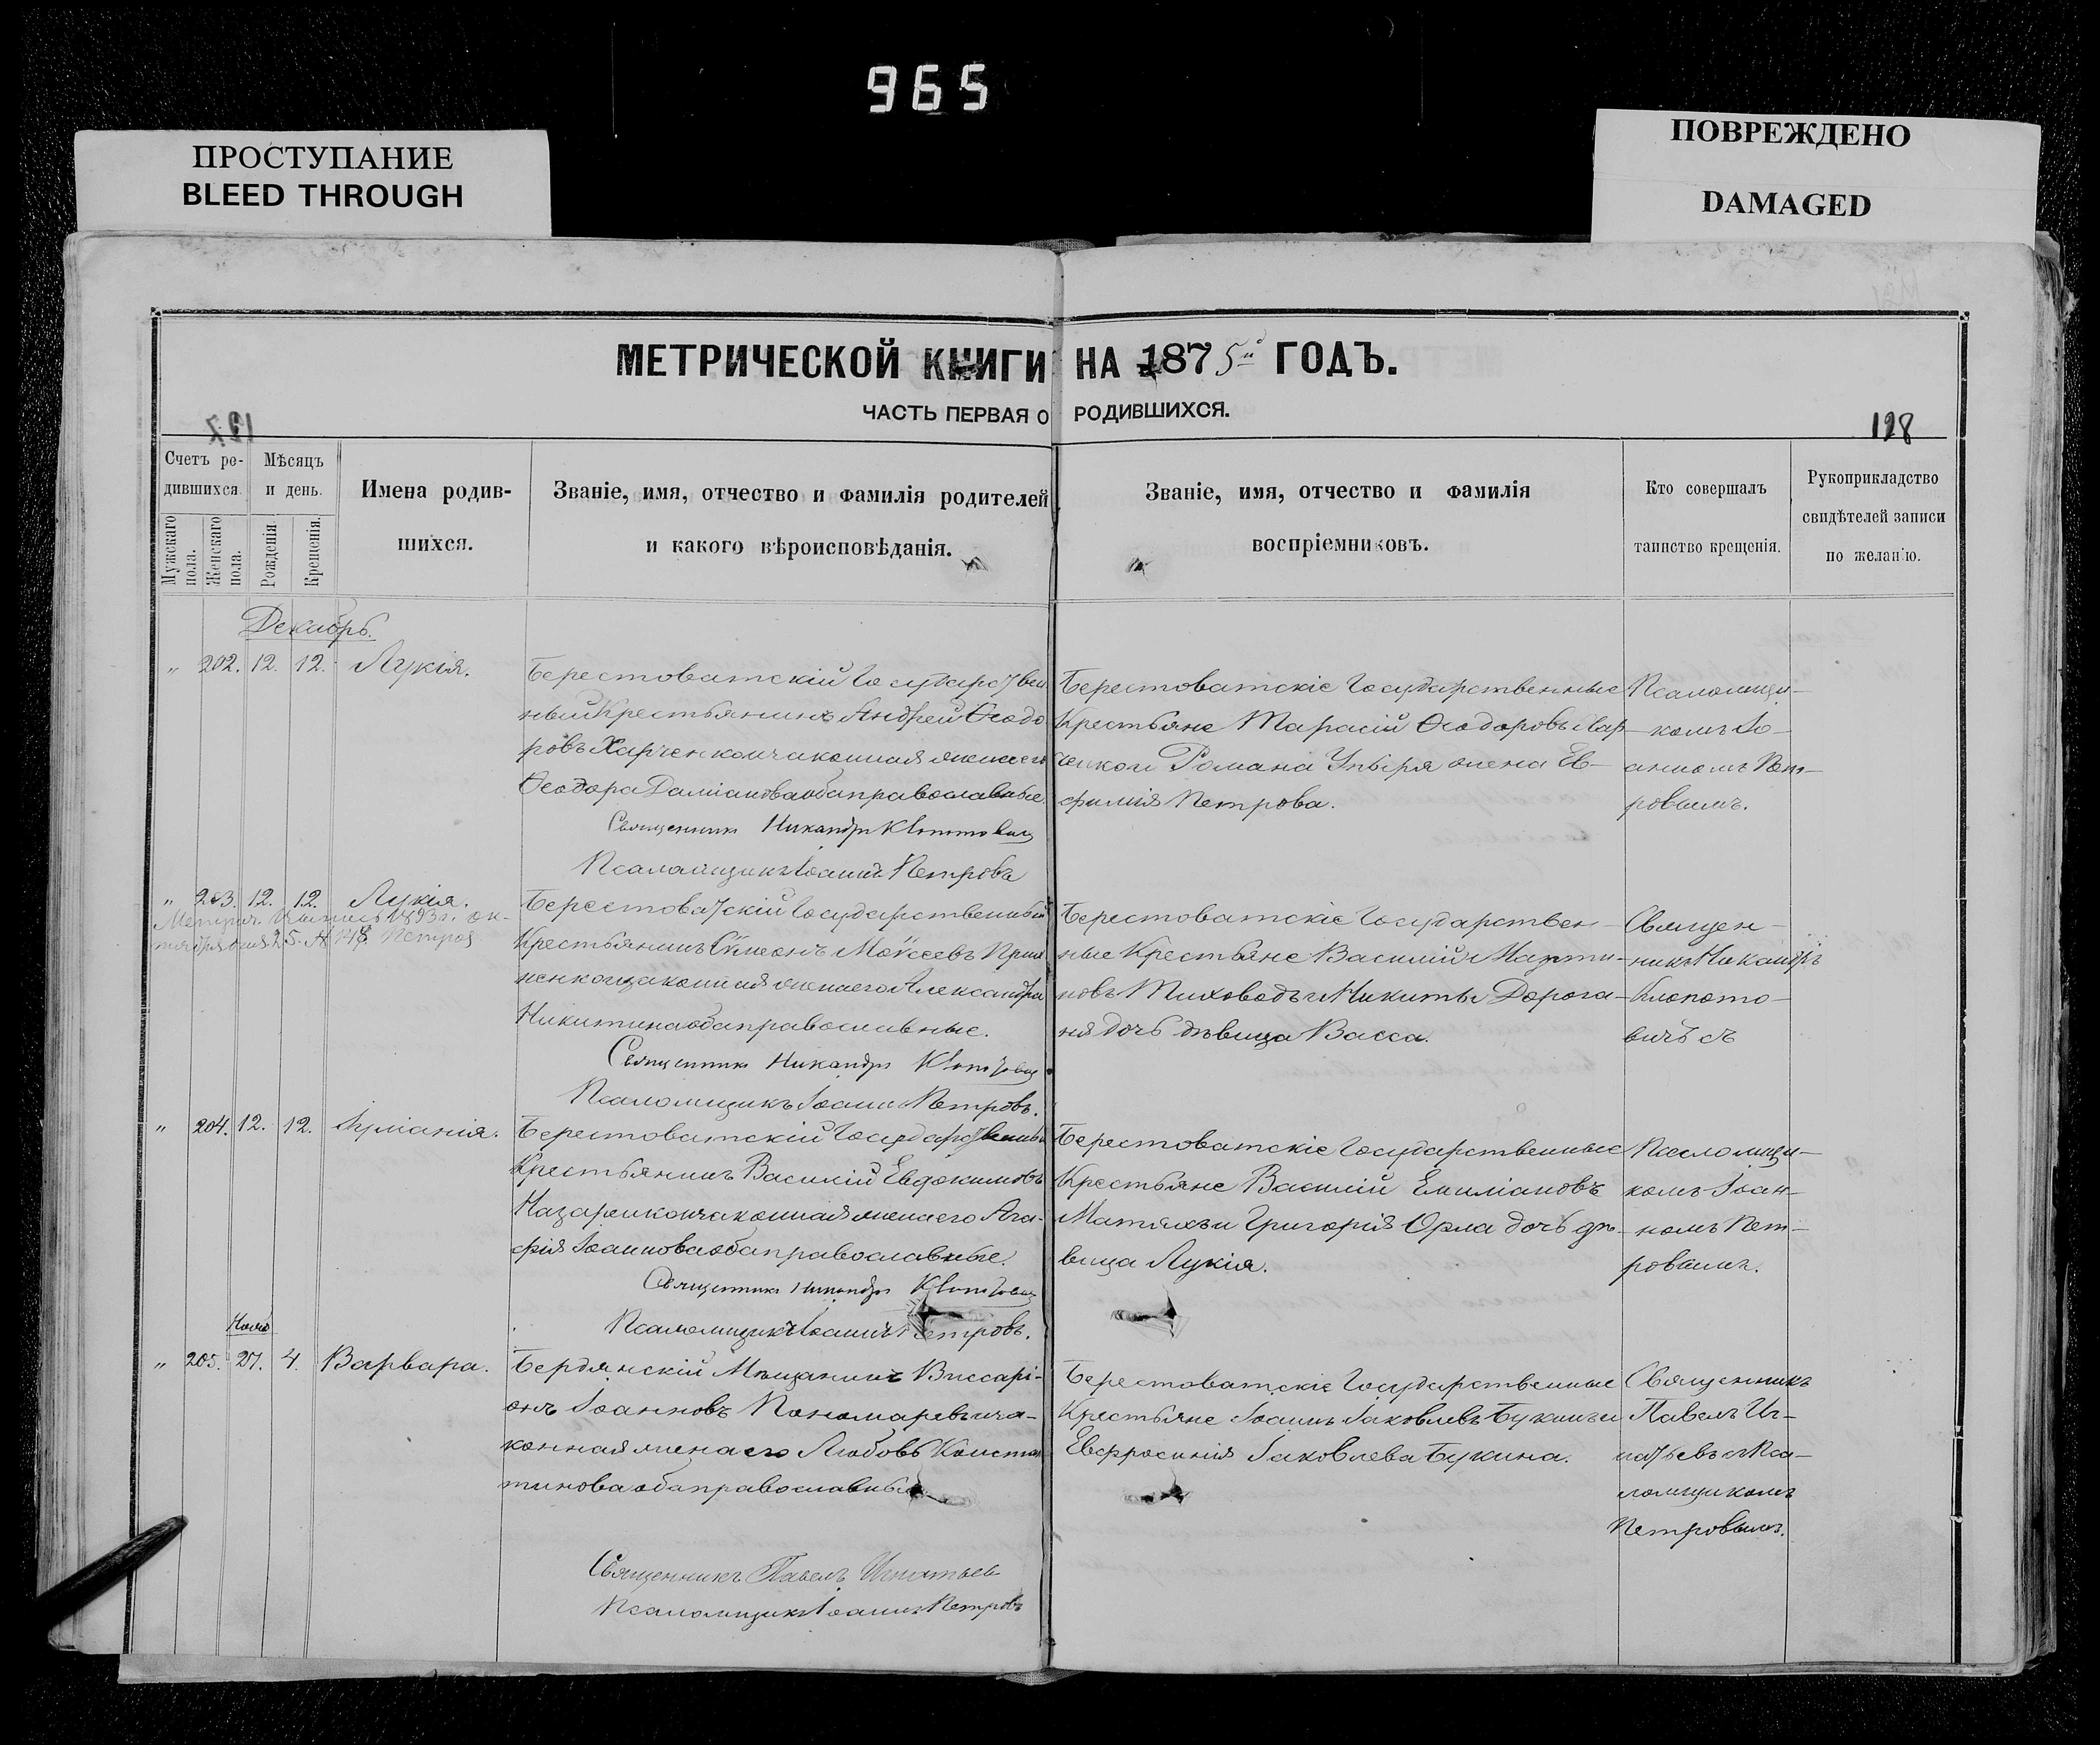 965
ПРОСТУПАНИЕ
BLEED THROUGH
ПОВРЕЖДЕНО
DAMAGED
МЕТРИЧЕСКОЙ КНИГИ НА 1875й ГОДЪ.
ЧАСТЬ ПЕРВАЯ О РОДИВШИХСЯ.
128
Счетъ ро-
дившихся
Мужскаго пола.
Женскаго пола.
Мѣсяцъ
и день.
Рожденія
Крещенія.
Имена родив-
шихся.
Званіе, имя, отчество и фамилія родителей
и какого вѣроисповѣданія.
Званіе, имя, отчество и фамилія
воспріемниковъ.
Кто совершалъ
таинство крещенія.
Рукоприкладство
свидѣтелей записи
по желанію.
Декабрь.
" 202. 12. 12. Лукія.
Берестоватскій Государствен
ный Крестьянинъ Андрей Ѳеодо
ровъ Харченко и законная жена его
Ѳеодора Даміанова оба православные.
Священникъ Никандръ Клопотовичъ
Псаломщикъ Іоаннъ Петровъ
Берестоватскіе Государственные
Крестьяне Тарасій Ѳеодоровъ Хар
ченко и Романа Упыря жена Ев-
фимія Петрова.
Псаломщи-
комъ Іо-
анномъ Пет-
ровымъ.
" 203. 12. 12. Лукія.
Берестоватскій Государственный
Крестьянинъ Сѵмеонъ Моѵсеевъ
законная жена его Александра
Никитина оба православные.
Священникъ Никандръ Клопотовичъ
Псаломщикъ Іоаннъ Петровъ.
Берестоватскіе Государствен-
ные Крестьяне Василій Марти-
новъ Тиховодъ и Никиты Дорога-
ня дочь дѣвица Васса.
Священ-
никъ Никандръ
Клопото-
вичъ съ
" 204. 12. 12.
Берестоватскій Государственный
Крестьянинъ Василій Евдокимовъ
Назаренко и законная жена его Ага-
фія Іоаннова оба православные.
Священникъ Никандръ Клопотовичъ
Псаломщикъ Іоаннъ Петровъ.
Берестоватскіе Государственные
Крестьяне Василій Емиліановъ
Матяхъ и Григорія Орла дочь дѣ-
вица Лукія.
Псаломщи-
комъ Іоан-
номъ Пет-
ровымъ.
Нояб
" 205. 27. 4. Варвара.
Бердянскій Мѣщанинъ Виссарі-
онъ Іоанновъ Пономаревъ и за-
конная жена его Любовь Констан
тинова оба православные
Священникъ Павелъ Игнатьевъ
Псаломщикъ Іоаннъ Петровъ
Берестоватскіе Государственные
Крестьяне Іоаннъ Іаковлевъ Букинъ и
Евфросинія Іаковлева Букина.
Священникъ
Павелъ Иг-
натьевъ съ Пса-
ломщикомъ
Петровымъ.